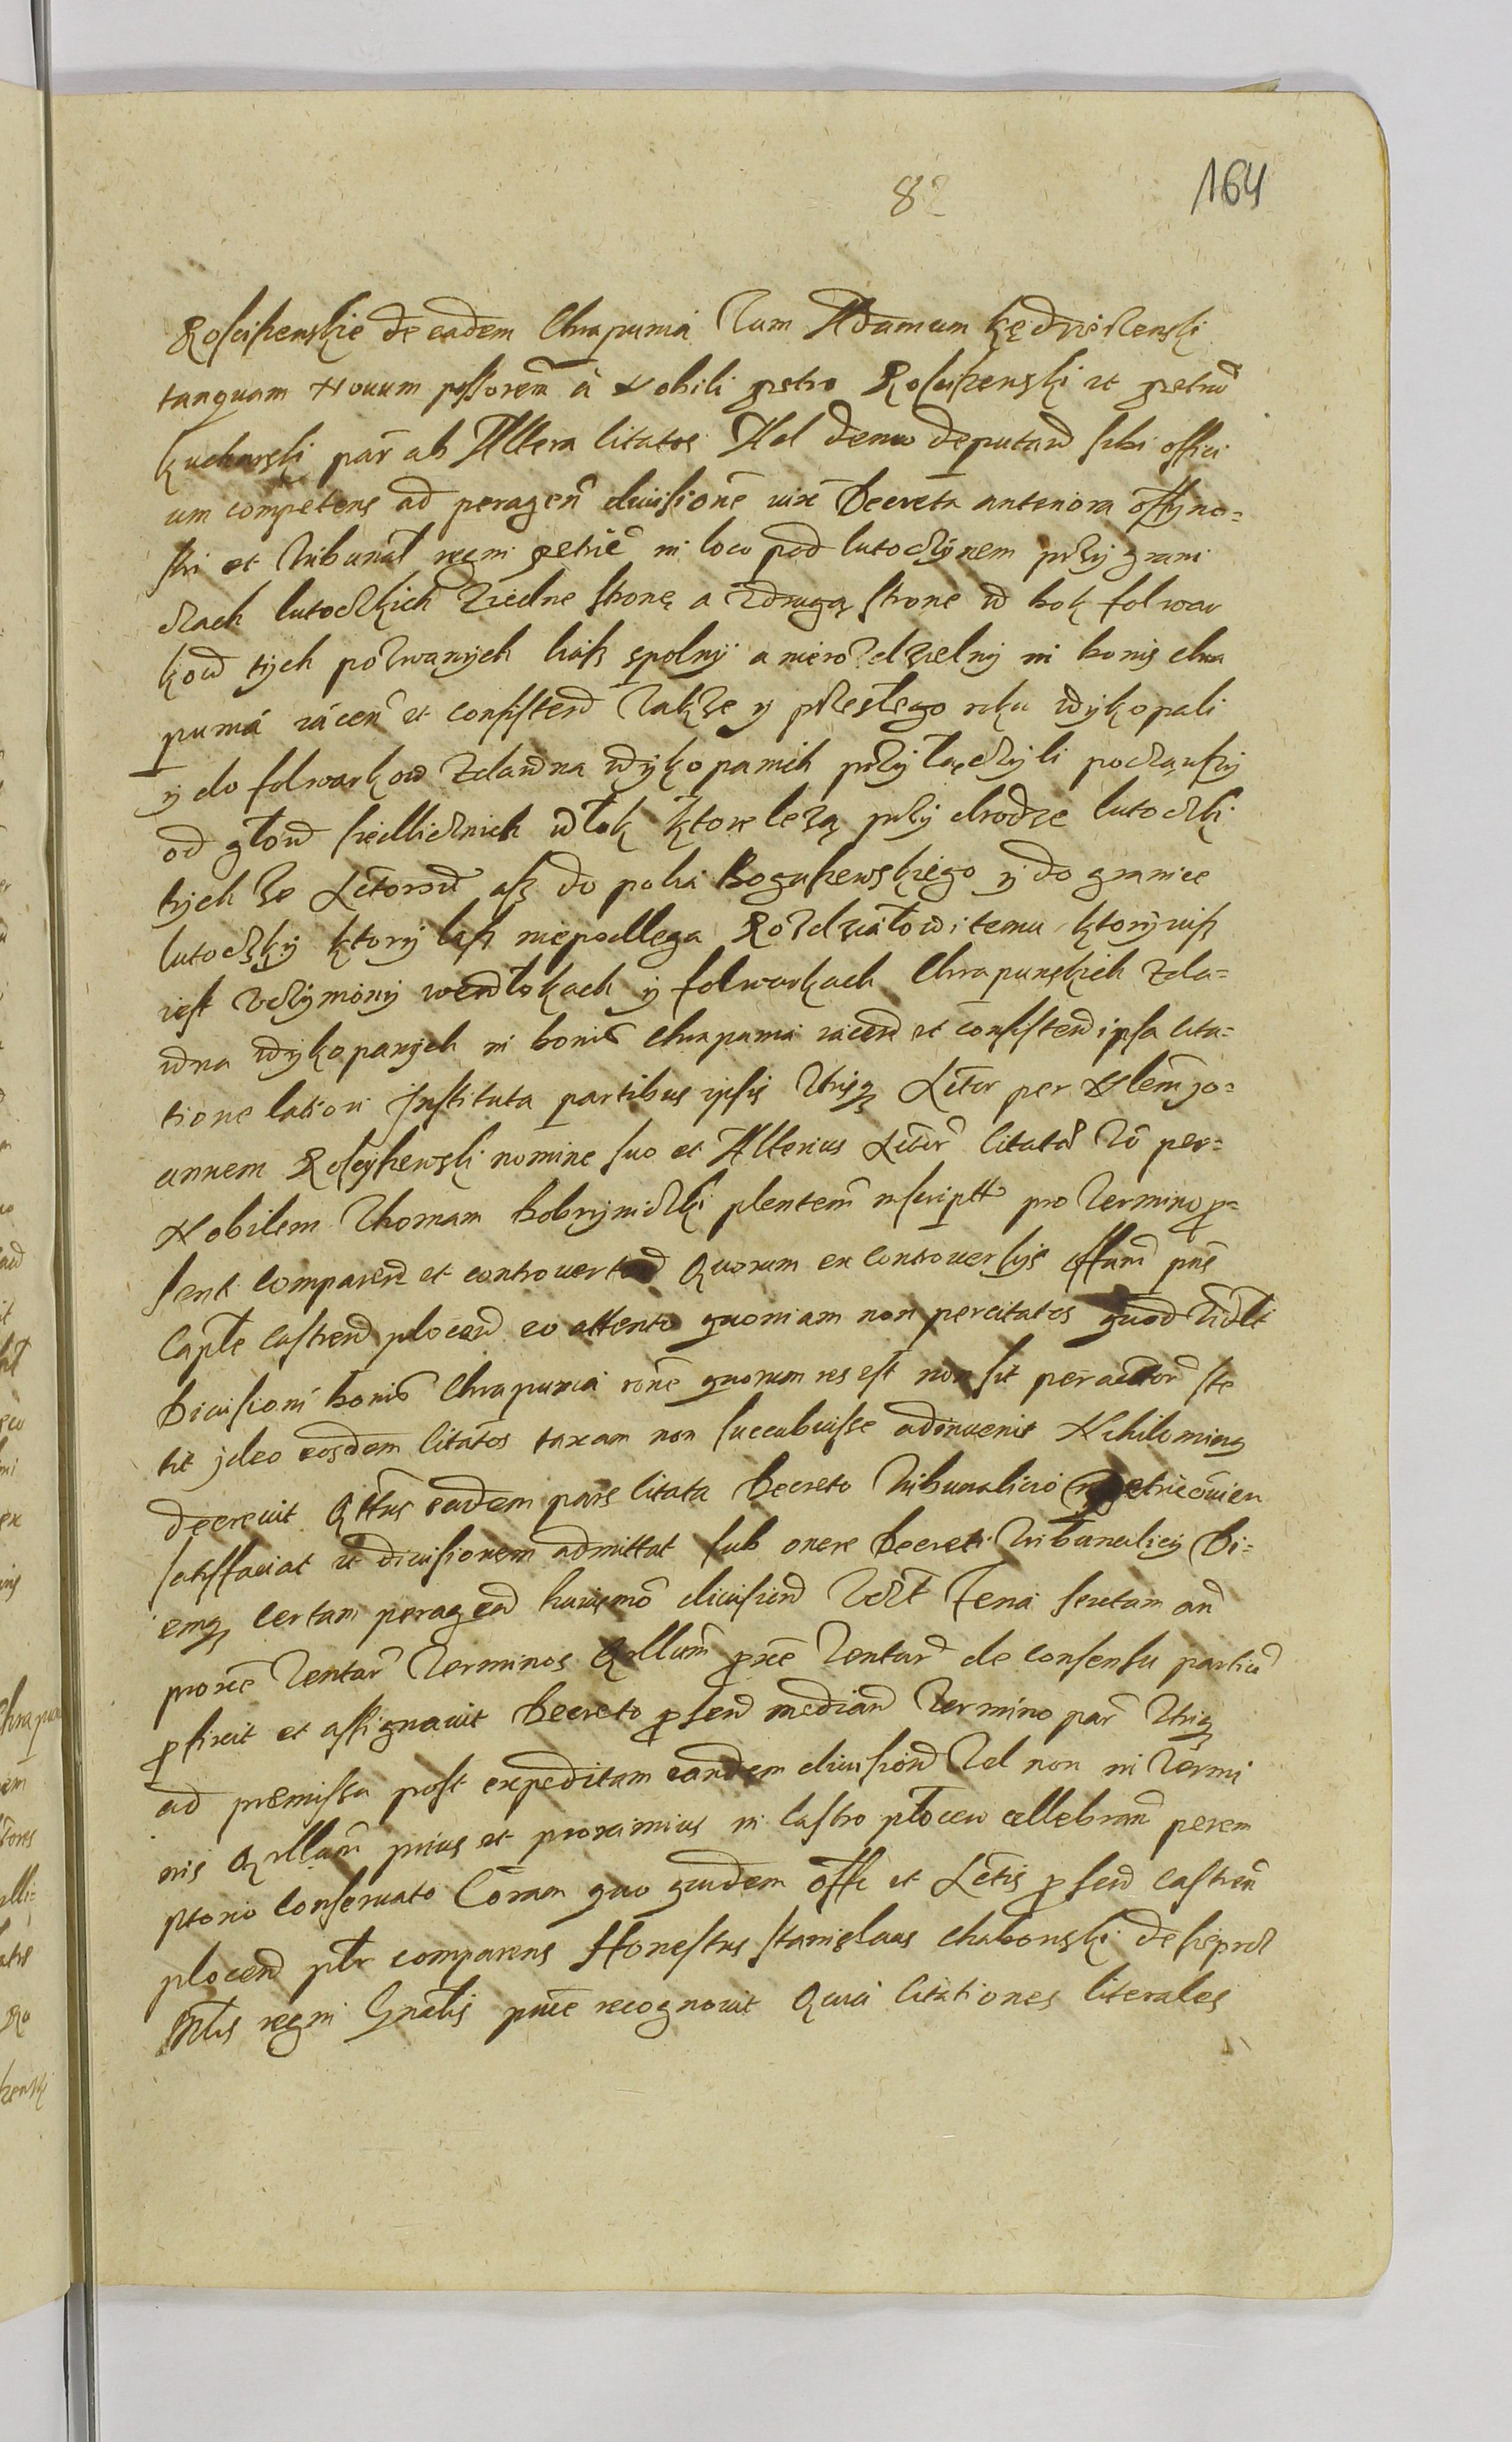 82 164
Rosciszewskie de eadem Chrapunia Tum Adamum Kędzierzenski
tanquam Nouum possorem a Nobili petro Rosciszewski et petrum
Kucharski par ab Altera citatos Ad denuo deputand sibi offici
um competens ad peragen diuisione iuxta Decreta anteriora
et Tribunal regni petric in loco pod lutoczynem przy grani
czach lutoczkich ziedne stronę a zdrugą strone w bok folwar
kow tych pozwanych las spolny a nierozdzielny in bonis chra
punia iacen et consisten Takze y przeszłego roku wykopali
y do folwarkow zdawna wykopanich przyłączyli począwszy
od głow siedlicznich włok ktore lezą przy drodze lutoczki
tychze Actorow asz do pola Boguszewskiego y do granice
lutoczky ktory las niepodlega Rozdziałowi temu ktory iusz
iest uczyniony we włokach y folwarkach Chrapunskich zda=
wna wykopanych in bonis Chrapunia iacen et consisten ipsa cita=
tione latiori Instituta partibus ipsis Utrisq Actor per Nlem Jo=
annem Roscyszewski nomine suo et Alterius Actor citata vo per=
Nobilem Thomam Bobrynidzki plentem inscriptt pro Termino p=
senti comparen et controuerten Quorum ex controuersijs offium pns
Caple castren plocen eo attento quoniam non per citatos quod
Diuisioni bonis Chrapunia rone quorum res est non sit peractor ste
tit ideo eosdem citatos taxam non succubuisse adinuenit Nihilominq
decreuit Qttus eadem pars citata Decreto Tribunalicio petricouien
satisfaciat et diuisionem admittat sub onere Decreti Tribunalicij Di=
emq certam peragend huiusmo diuision feria sextam an
proxe Tentar Terminos Qrllum pxe Tentur de consensu partiu
pfixit et assignauit Decreto psen median Termino par Utriq
ad premissa post expeditam eandem diuision Vel non in Termi
nis Qrllum prius et proximius in Castro plocen cellebran perem
ptorio conseruato Coram quo quidem offi et Actis psen castren
plocen pltr comparens Honestus Stanislaus Chabowski de sieprcz
regni Gnalis pnte recognouit Quia citationes literales